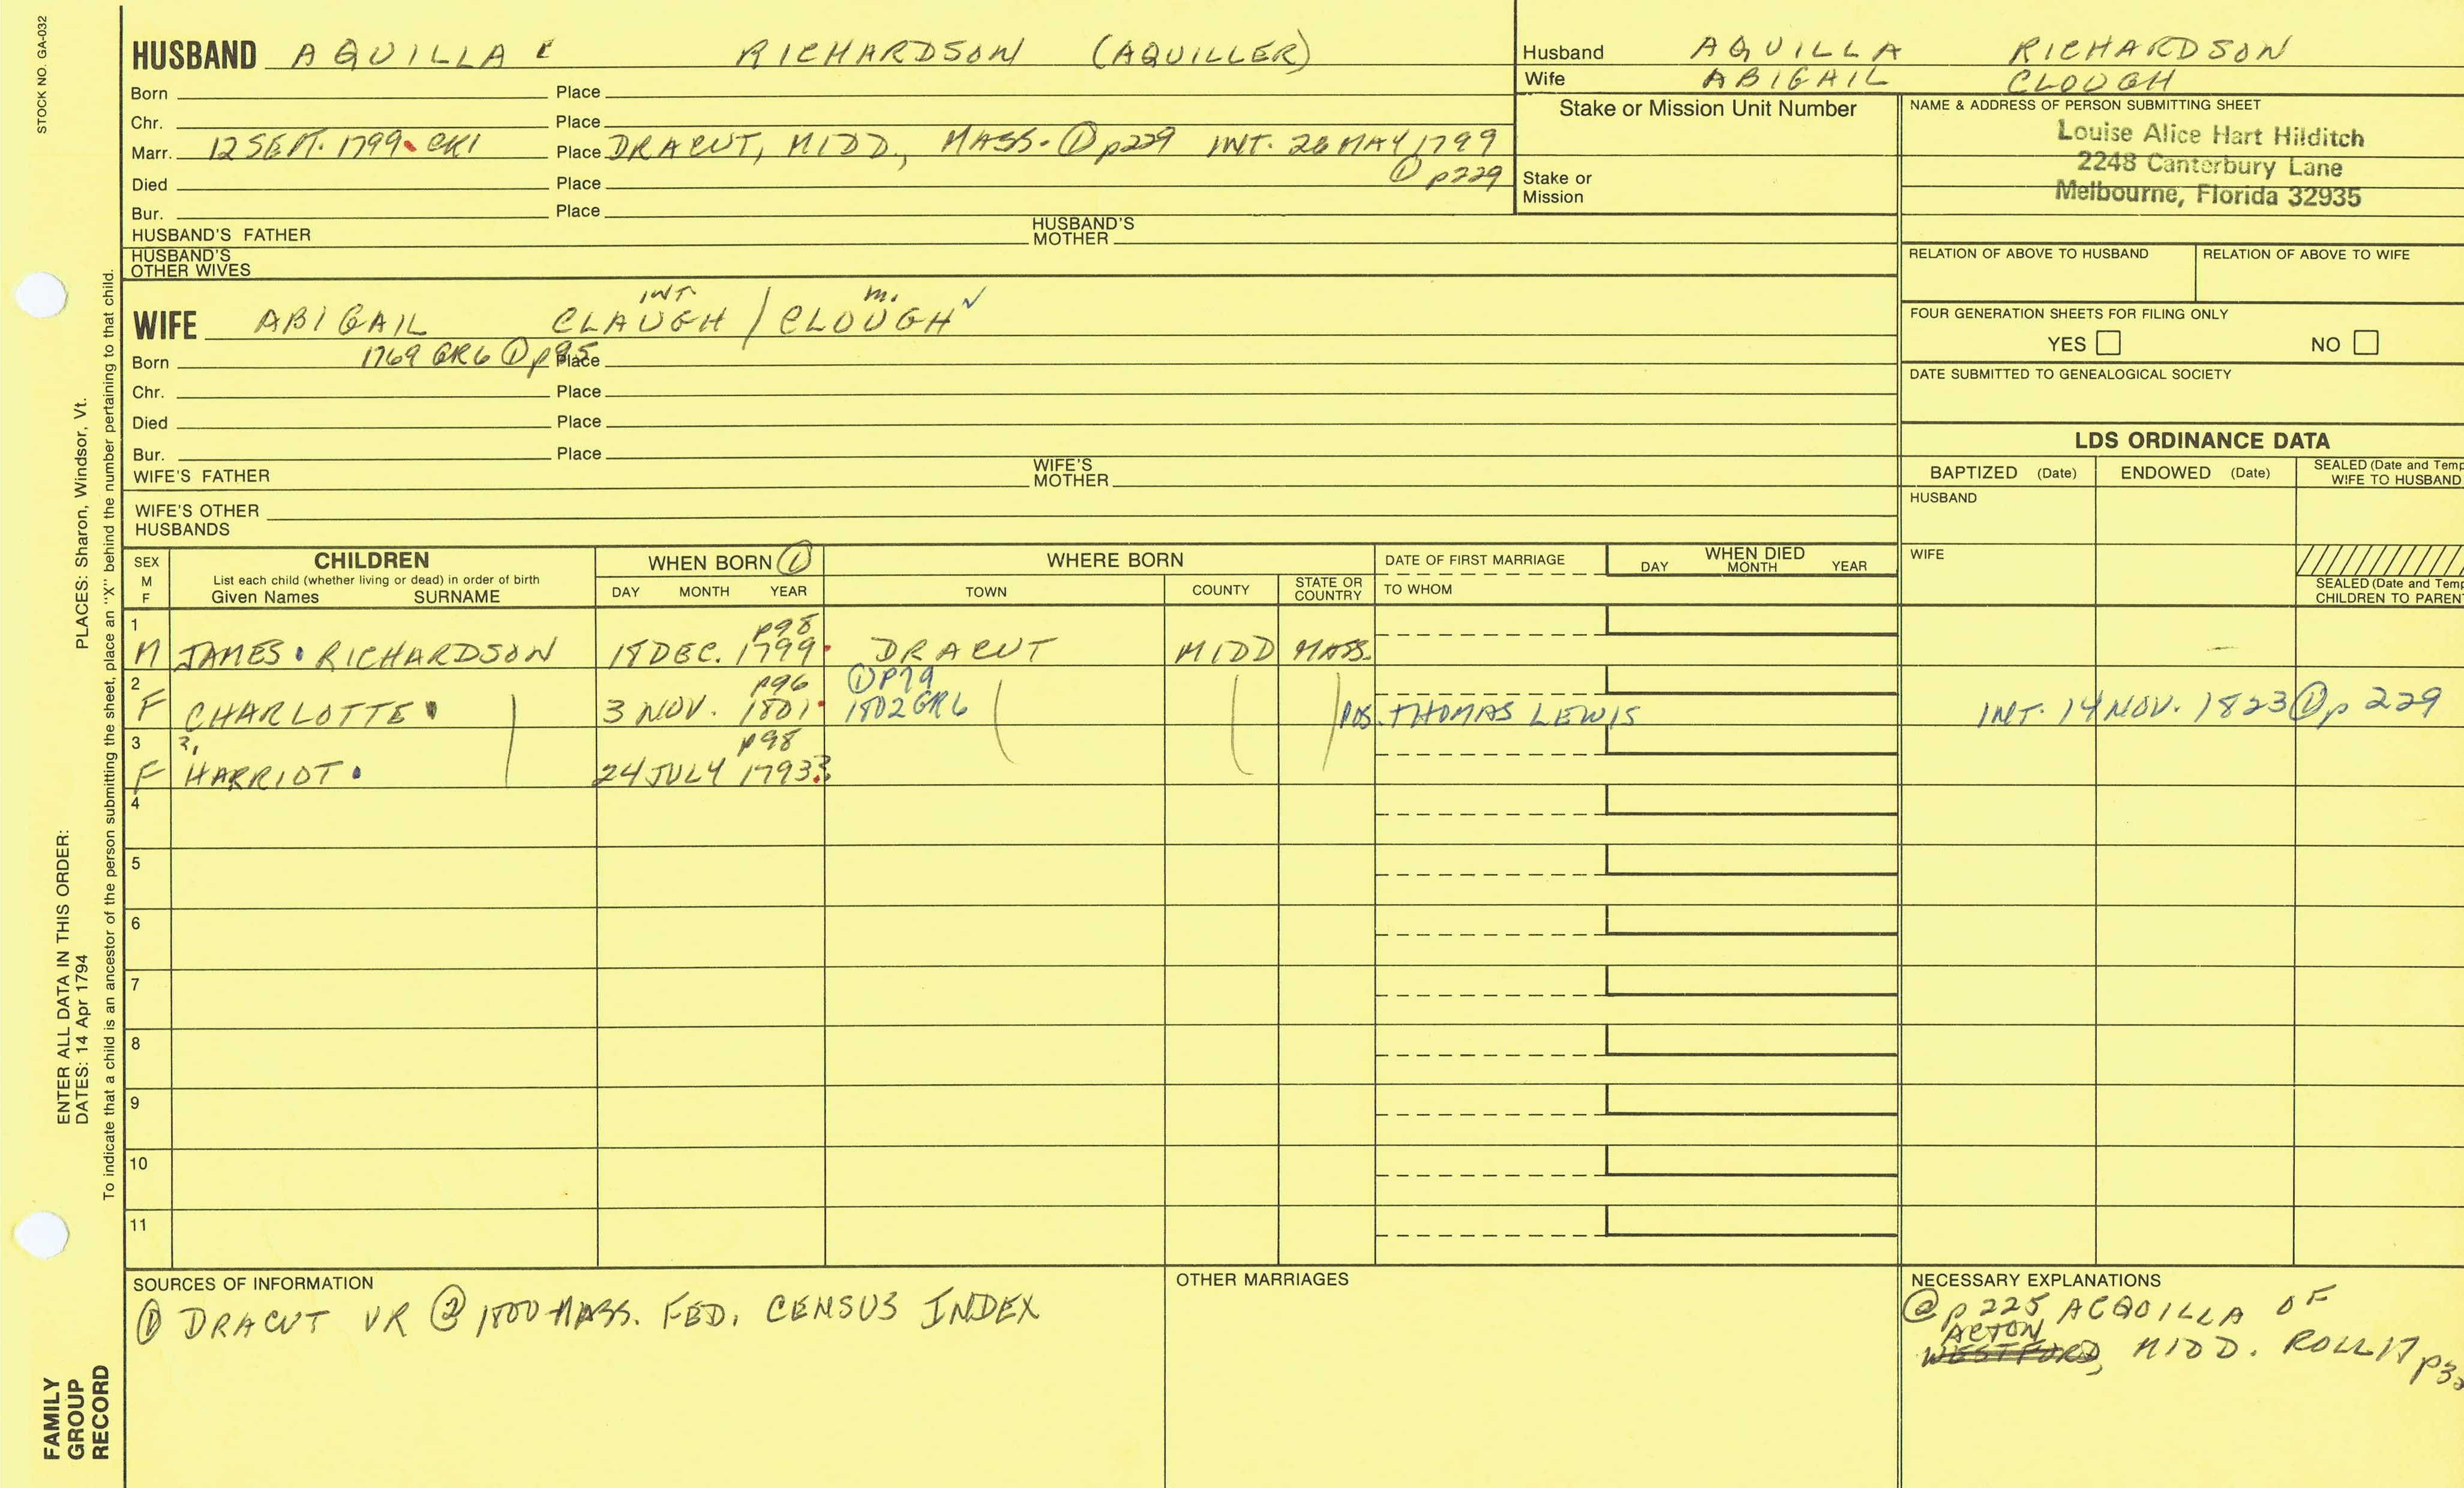 STOCK NO. GA-032
HUSBAND AQUILLA RICHARDSON (AQUILLER)
Born Place
Chr. Place
Marr. 12 SEPT. 1799 CR1 Place DRACUT, MIDD., MASS. ① p229 INT. 26 MAY 1799
① p229
Died Place
Bur. Place
HUSBAND'S FATHER HUSBAND'S MOTHER
HUSBAND'S OTHER WIVES
INT. m.
WIFE ABIGAIL CLAUGH / CLOUGH ✓
Born 1769 GR6 ① p95 Place
Chr. Place
Died Place
Bur. Place
WIFE'S FATHER WIFE'S MOTHER
WIFE'S OTHER HUSBANDS
Husband AQUILLA RICHARDSON
Wife ABIGAIL CLOUGH
Stake or Mission Unit Number
Stake or Mission
NAME & ADDRESS OF PERSON SUBMITTING SHEET
Louise Alice Hart Hilditch
2248 Canterbury Lane
Melbourne, Florida 32935
RELATION OF ABOVE TO HUSBAND RELATION OF ABOVE TO WIFE
FOUR GENERATION SHEETS FOR FILING ONLY
YES NO
DATE SUBMITTED TO GENEALOGICAL SOCIETY
LDS ORDINANCE DATA
BAPTIZED (Date) ENDOWED (Date) SEALED (Date and Temp
WIFE TO HUSBAND
HUSBAND
WIFE
SEALED (Date and Temp
CHILDREN TO PARENT
SEX M F
CHILDREN
List each child (whether living or dead) in order of birth
Given Names SURNAME
WHEN BORN ①
DAY MONTH YEAR
WHERE BORN
TOWN COUNTY STATE OR COUNTRY
DATE OF FIRST MARRIAGE
TO WHOM
WHEN DIED
DAY MONTH YEAR
1
p98
M JAMES RICHARDSON 18 DEC. 1799 DRACUT MIDD MASS.
2
p96 ① P79
F CHARLOTTE 3 NOV. 1801 1802 GR6 POS. THOMAS LEWIS INT. 14 NOV. 1823 ① p 229
3
?, p98
F HARRIOT 24 JULY 1793?
4
5
6
7
8
9
10
11
SOURCES OF INFORMATION
① DRACUT VR ② 1800 MASS. FED. CENSUS INDEX
OTHER MARRIAGES
NECESSARY EXPLANATIONS
② p 225 ACQUILLA OF
ACTON
WESTFORD, MIDD. ROLL 17
ENTER ALL DATA IN THIS ORDER:
DATES: 14 Apr 1794 PLACES: Sharon, Windsor, Vt.
To indicate that a child is an ancestor of the person submitting the sheet, place an "X" behind the number pertaining to that child.
FAMILY
GROUP
RECORD